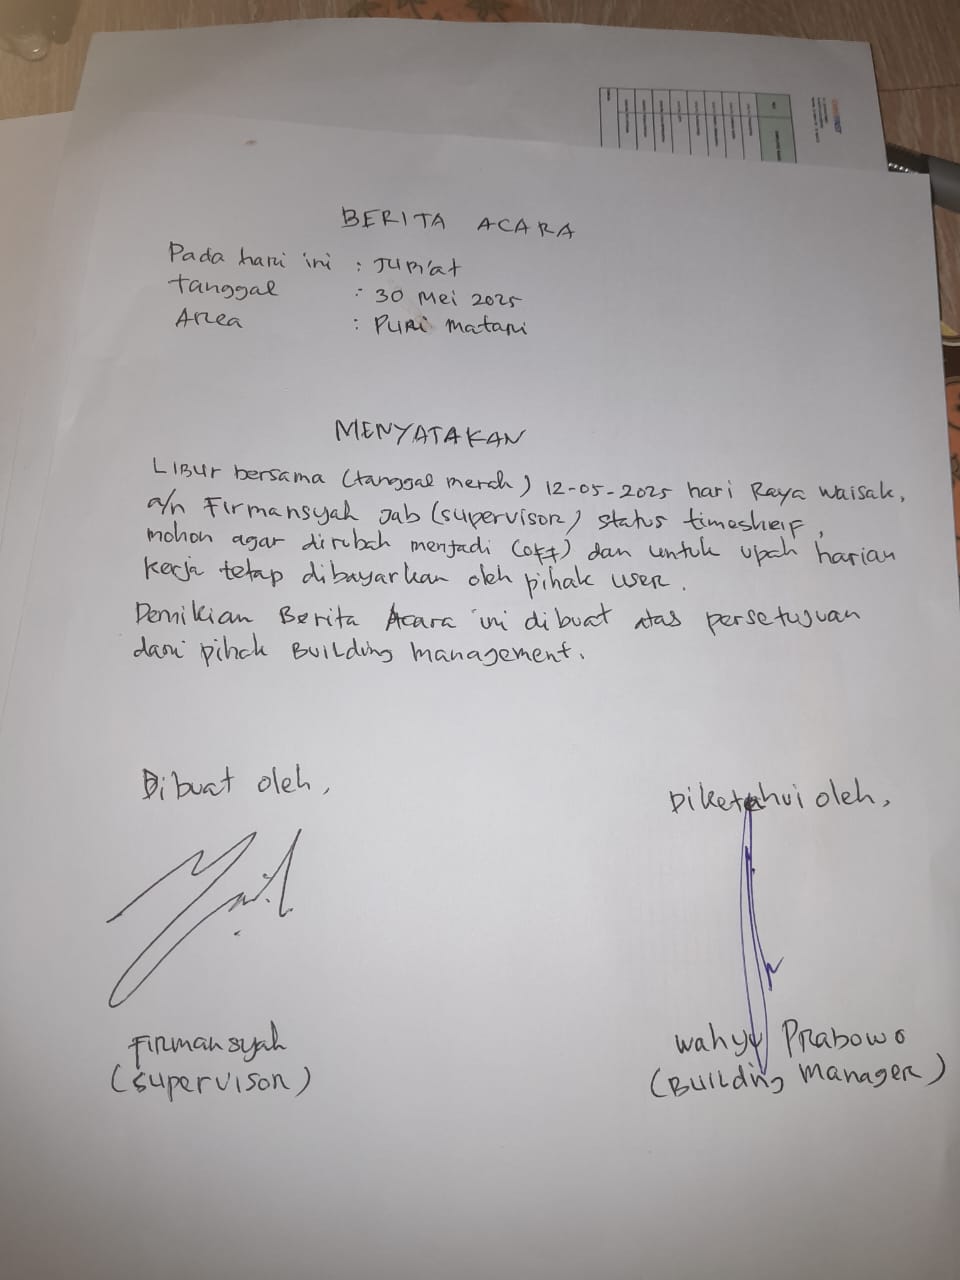 BERITA ACARA
Pada hari ini : Jum'at
tanggal : 30 Mei 2025
Area : Puri Matari
MENYATAKAN
Libur bersama (tanggal merah) 12-05-2025 hari Raya Waisak,
a/n Firmansyah Jab (supervisor) status timesheef,
mohon agar dirubah menjadi (off) dan untuk upah harian
kerja tetap dibayarkan oleh pihak user.
Demikian Berita Acara ini dibuat atas persetujuan
dari pihak Building Management.
Dibuat oleh,
Diketahui oleh,
Firmansyah
(supervisor)
Wahyu Prabowo
(Building Manager)